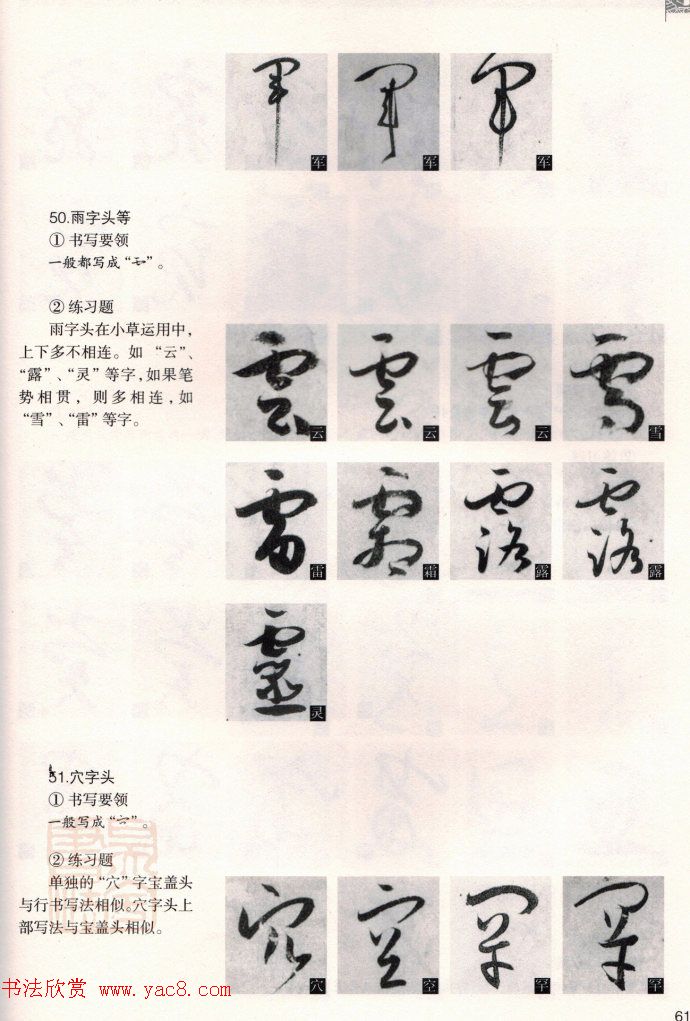 军
军
军
50.雨字头等
① 书写要领
一般都写成“ ”。
② 练习题
雨字头在小草运用中，
上下多不相连。如 “云”、
“露”、“灵”等字，如果笔
势相贯， 则多相连，如
“雪”、“雷”等字。
云
云
云
雪
雷
霜
露
露
灵
51.穴字头
① 书写要领
一般写成“ ”。
② 练习题
单独的“穴”字宝盖头
与行书写法相似。穴字头上
部写法与宝盖头相似。
穴
空
罕
罕
书法欣赏 www.yac8.com
61